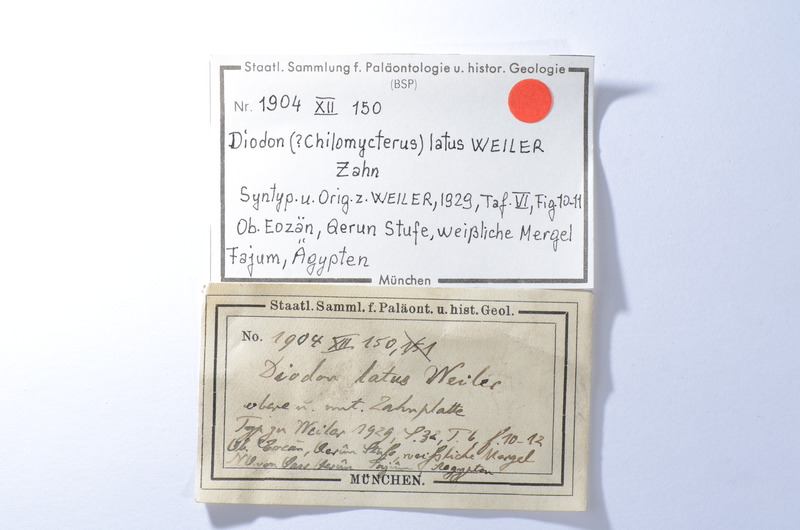 Staatl. Sammlung f. Paläontologie u. histor. Geologie
(BSP)
Nr. 1904 XII 150
Diodon (?Chilomycterus) latus WEILER
Zahn
Syntyp. u. Orig. z. WEILER, 1929, Taf. VI, Fig. 10-11
Ob. Eozän, Qerun Stufe, weißliche Mergel
Fajum, Ägypten
München
Staatl. Samml. f. Paläont. u. hist. Geol.
No. 1904 XII 150, 151
Diodon latus Weiler
obere u. unt. Zahnplatte
Typ zu Weiler 1929, S. 32, T. 6, f. 10-12
Ob. Eocän, Qerûn Stufe, weißliche Mergel
NO von Qasr Qerûn Fajûm, Aegypten
MÜNCHEN.